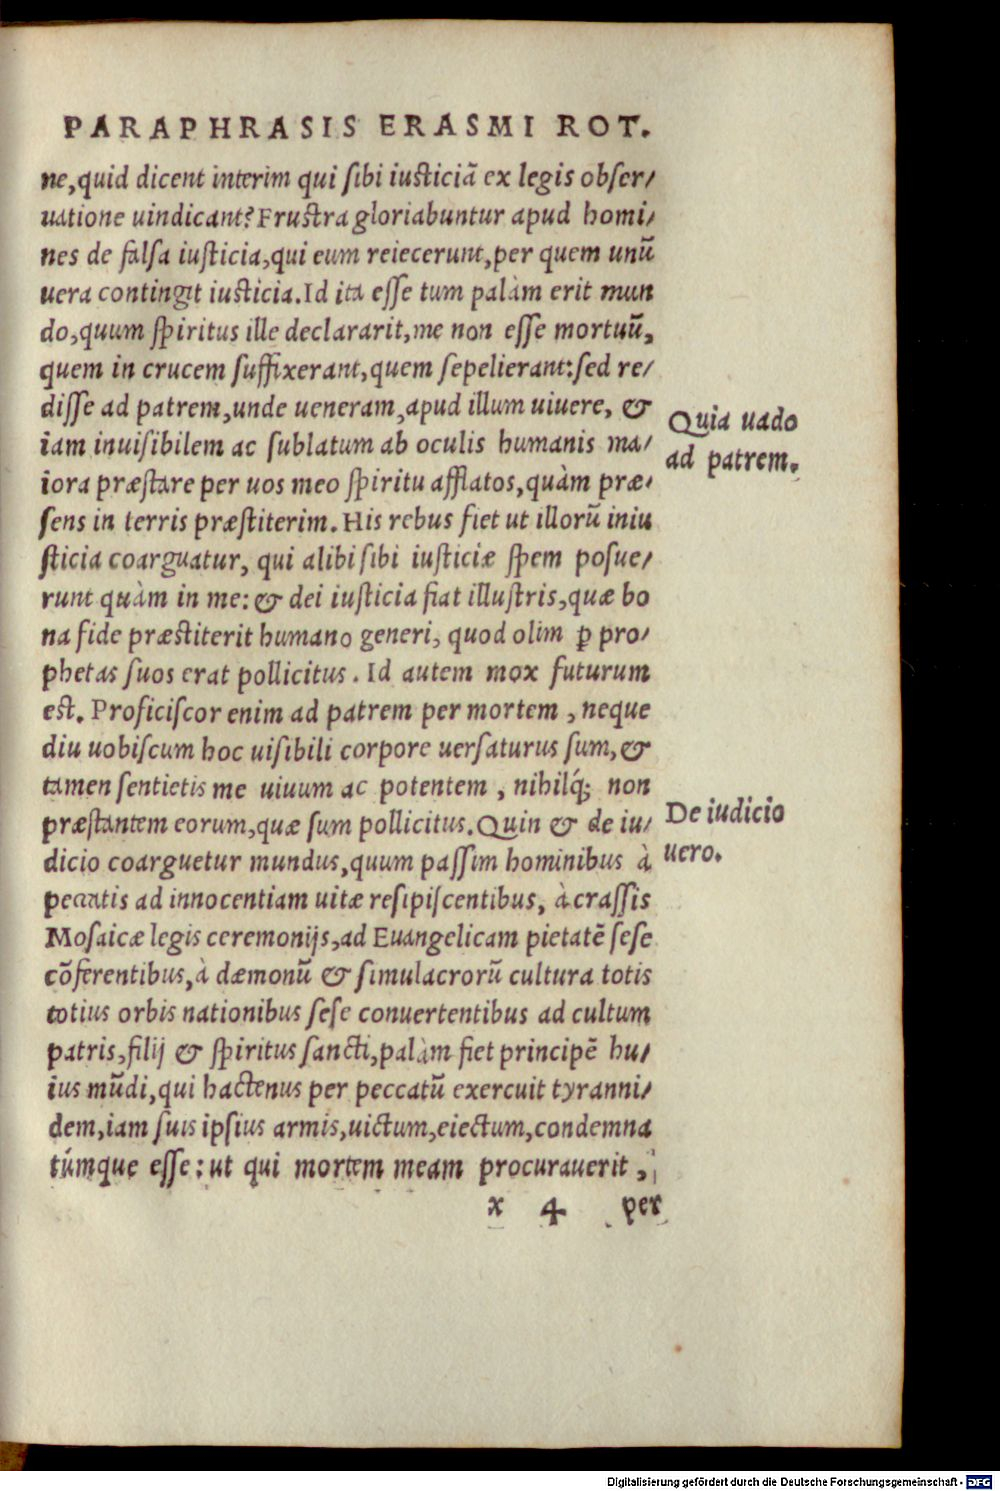 PARAPHRASIS ERASMI ROT.
ne,quid dicent interim qui sibi iusticiã ex legis obser/
uatione uindicant? Frustra gloriabuntur apud homi/
nes de falsa iusticia,qui eum reiecerunt,per quem unũ
uera contingit iusticia.Id ita esse tum palàm erit mun
do,quum spiritus ille declararit,me non esse mortuũ,
quem in crucem suffixerant,quem sepelierant:sed re/
disse ad patrem,unde ueneram,apud illum uiuere, &
iam inuisibilem ac sublatum ab oculis humanis ma/
iora præstare per uos meo spiritu afflatos,quàm præ/
sens in terris præstiterim.His rebus fiet ut illorũ iniu
sticia coarguatur, qui alibi sibi iusticiæ spem posue/
runt quàm in me: & dei iusticia fiat illustris,quæ bo
na fide præstiterit humano generi, quod olim ꝑ pro/
phetas suos erat pollicitus. Id autem mox futurum
est. Proficiscor enim ad patrem per mortem, neque
diu uobiscum hoc uisibili corpore uersaturus sum,&
tamen sentietis me uiuum ac potentem, nihilq́; non
præstantem eorum,quæ sum pollicitus.Quin & de iu/
dicio coarguetur mundus,quum passim hominibus à
peccatis ad innocentiam uitæ resipiscentibus, à crassis
Mosaicæ legis ceremonijs,ad Euangelicam pietatẽ sese
cõferentibus,à dæmonũ & simulacrorũ cultura totis
totius orbis nationibus sese conuertentibus ad cultum
patris,filij & spiritus sancti,palàm fiet principẽ hu/
ius mũdi,qui hactenus per peccatũ exercuit tyranni/
dem,iam suis ipsius armis,uictum,eiectum,condemna
túmque esse: ut qui mortem meam procurauerit,
x 4 per
Quia uado
ad patrem.
De iudicio
uero.
Digitalisierung gefördert durch die Deutsche Forschungsgemeinschaft - DFG